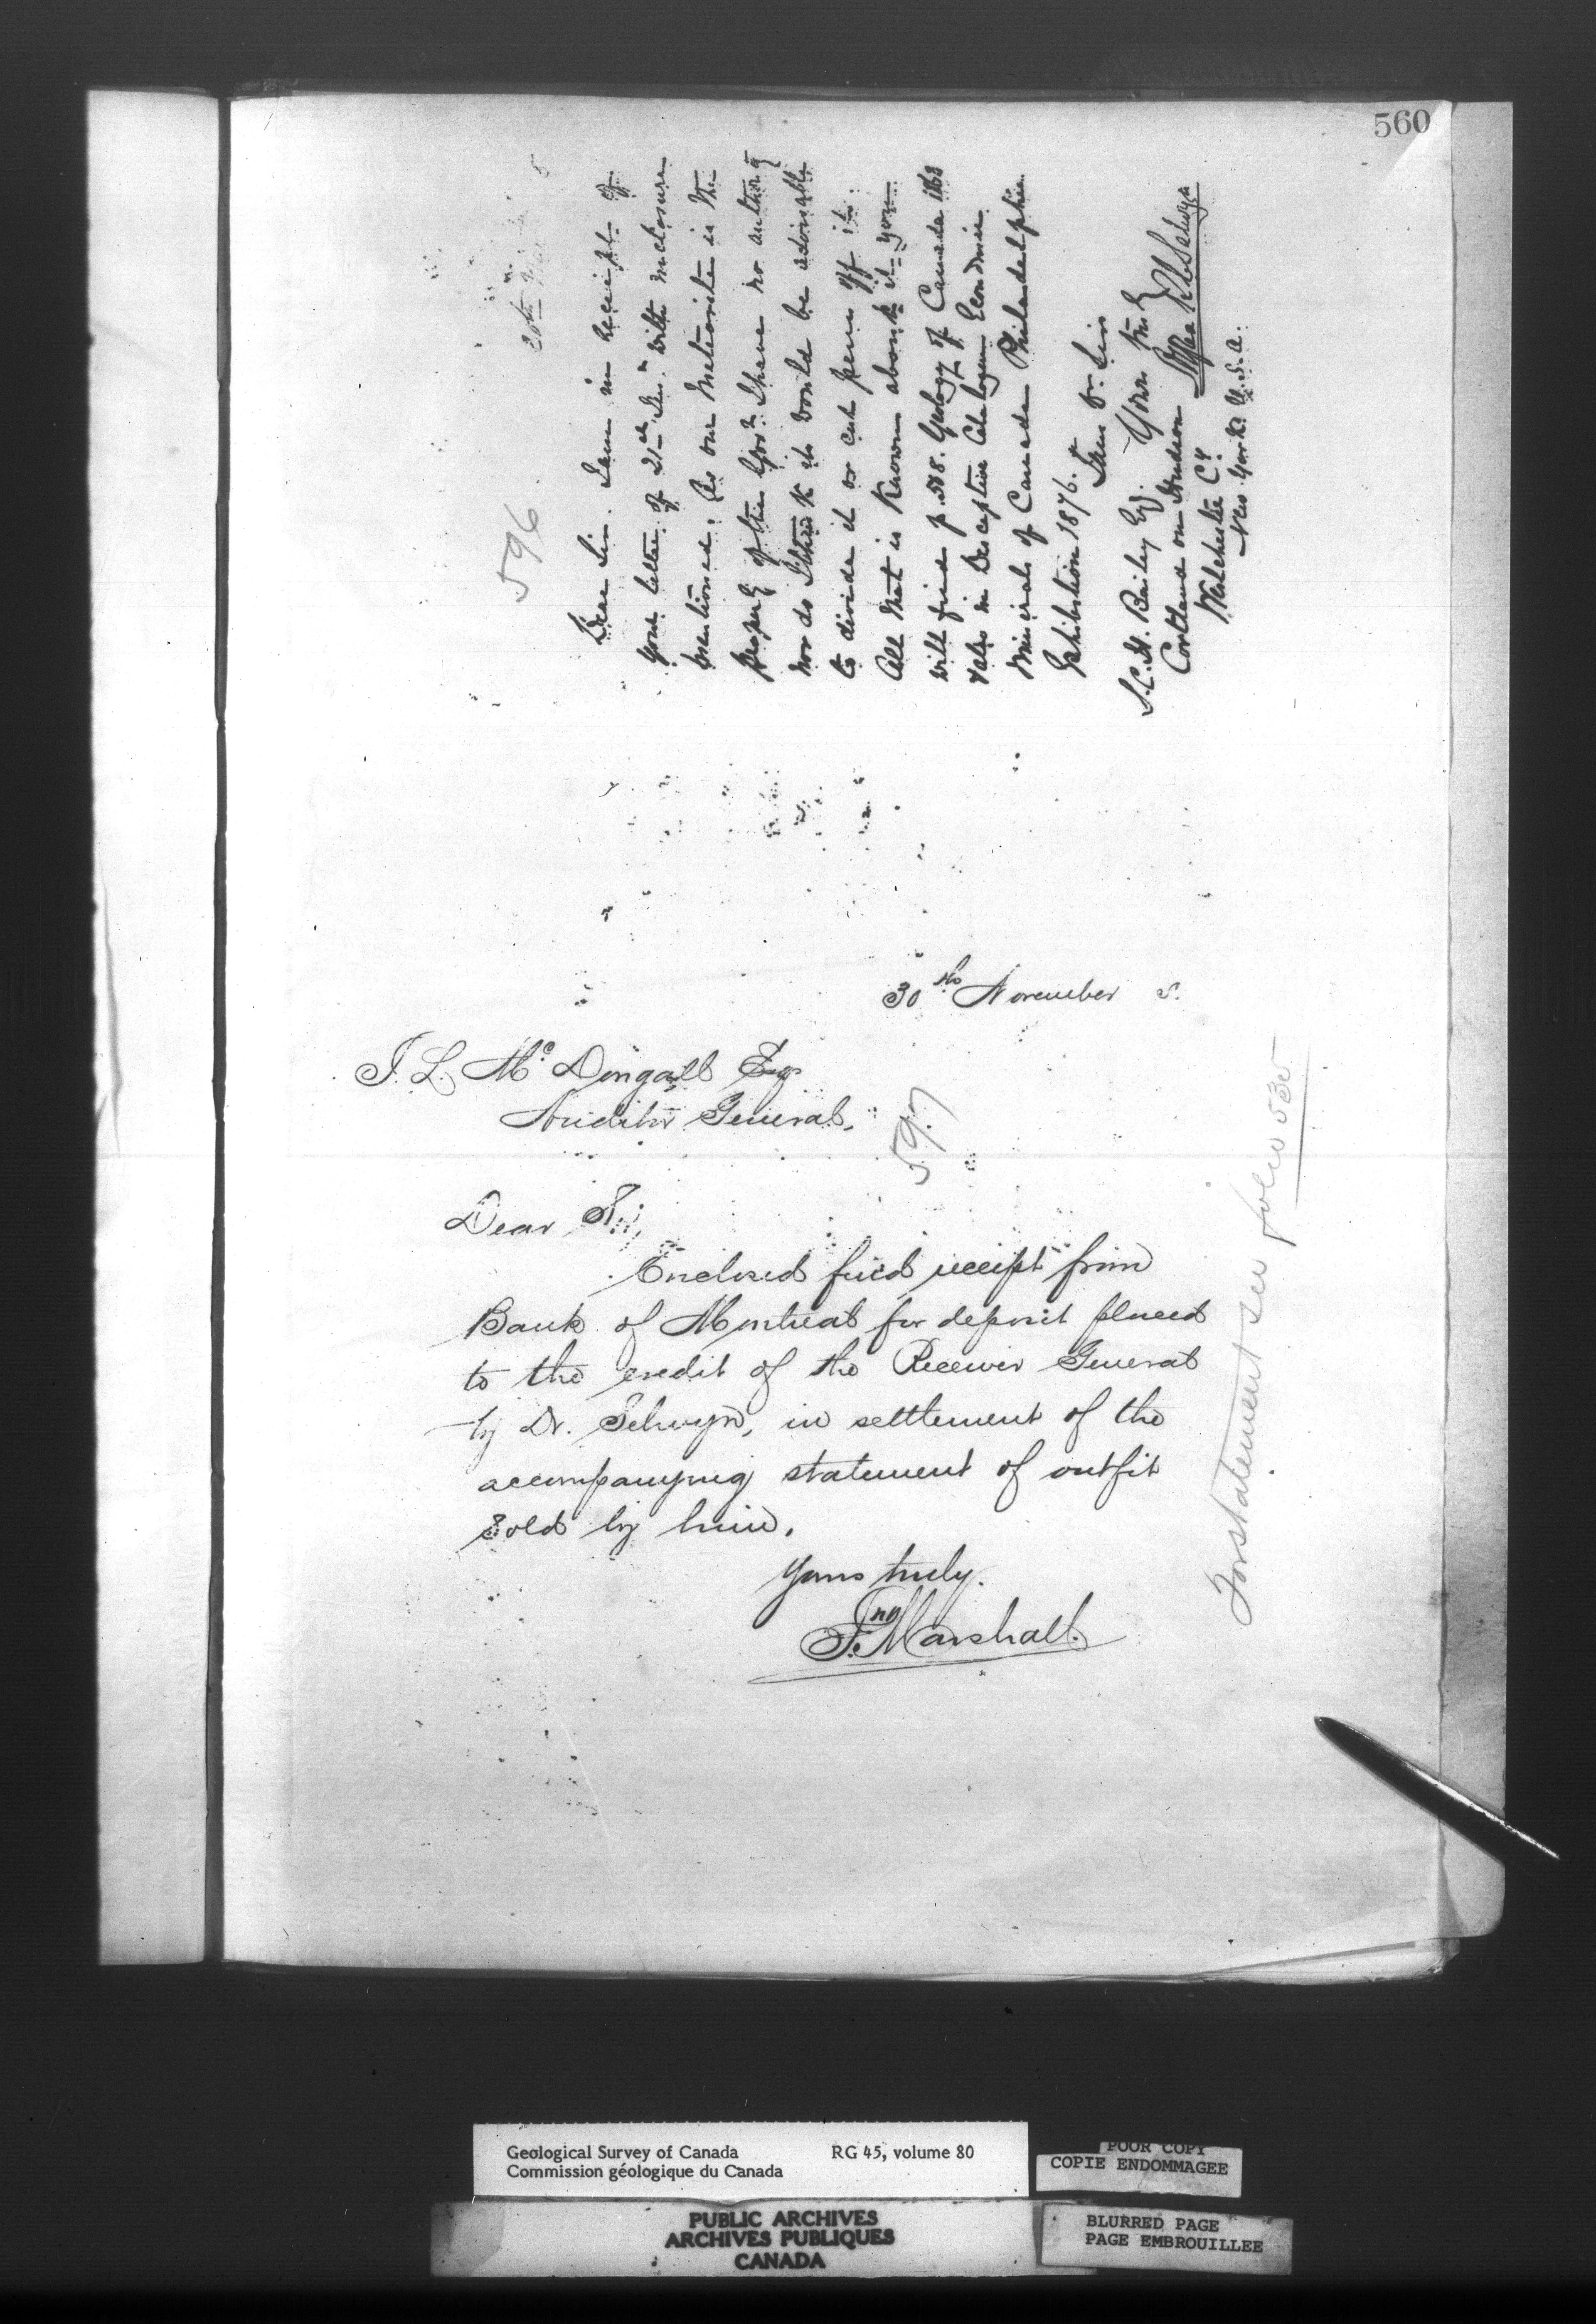 560
596
30th Nov 5
Dear Sir. I am in receipt of
your letter of 21st Inst. with inclosure
mentioned. As our Meteorite is the
property of the Govt. I have no authority
nor do I think it would be advisable
to divide it or cut pieces off it.
All that is known about it you
will find p. 508. Geology of Canada 1863
also in Descriptive Catalogue Economic
Minerals of Canada Philadelphia
Exhibition 1876.
I am Dr. Sir
Yours truly
Alfred R C Selwyn
S.C.H. Bailey Esq.
Cortland on Hudson
Westchester Cy.
New York. U.S.A.
30th November 5.
J. L. Mc Dougall Esq
Auditor General.
597
Dear Sir,
Enclosed find receipt from
Bank of Montreal for deposit placed
to the credit of the Receiver General
by Dr. Selwyn, in settlement of the
accompanying statement of outfit
sold by him.
Yours truly.
Jno. Marshall.
For statement see folio 535
Geological Survey of Canada RG 45, volume 80
Commission géologique du Canada
POOR COPY
COPIE ENDOMMAGEE
PUBLIC ARCHIVES
ARCHIVES PUBLIQUES
CANADA
BLURRED PAGE
PAGE EMBROUILLEE